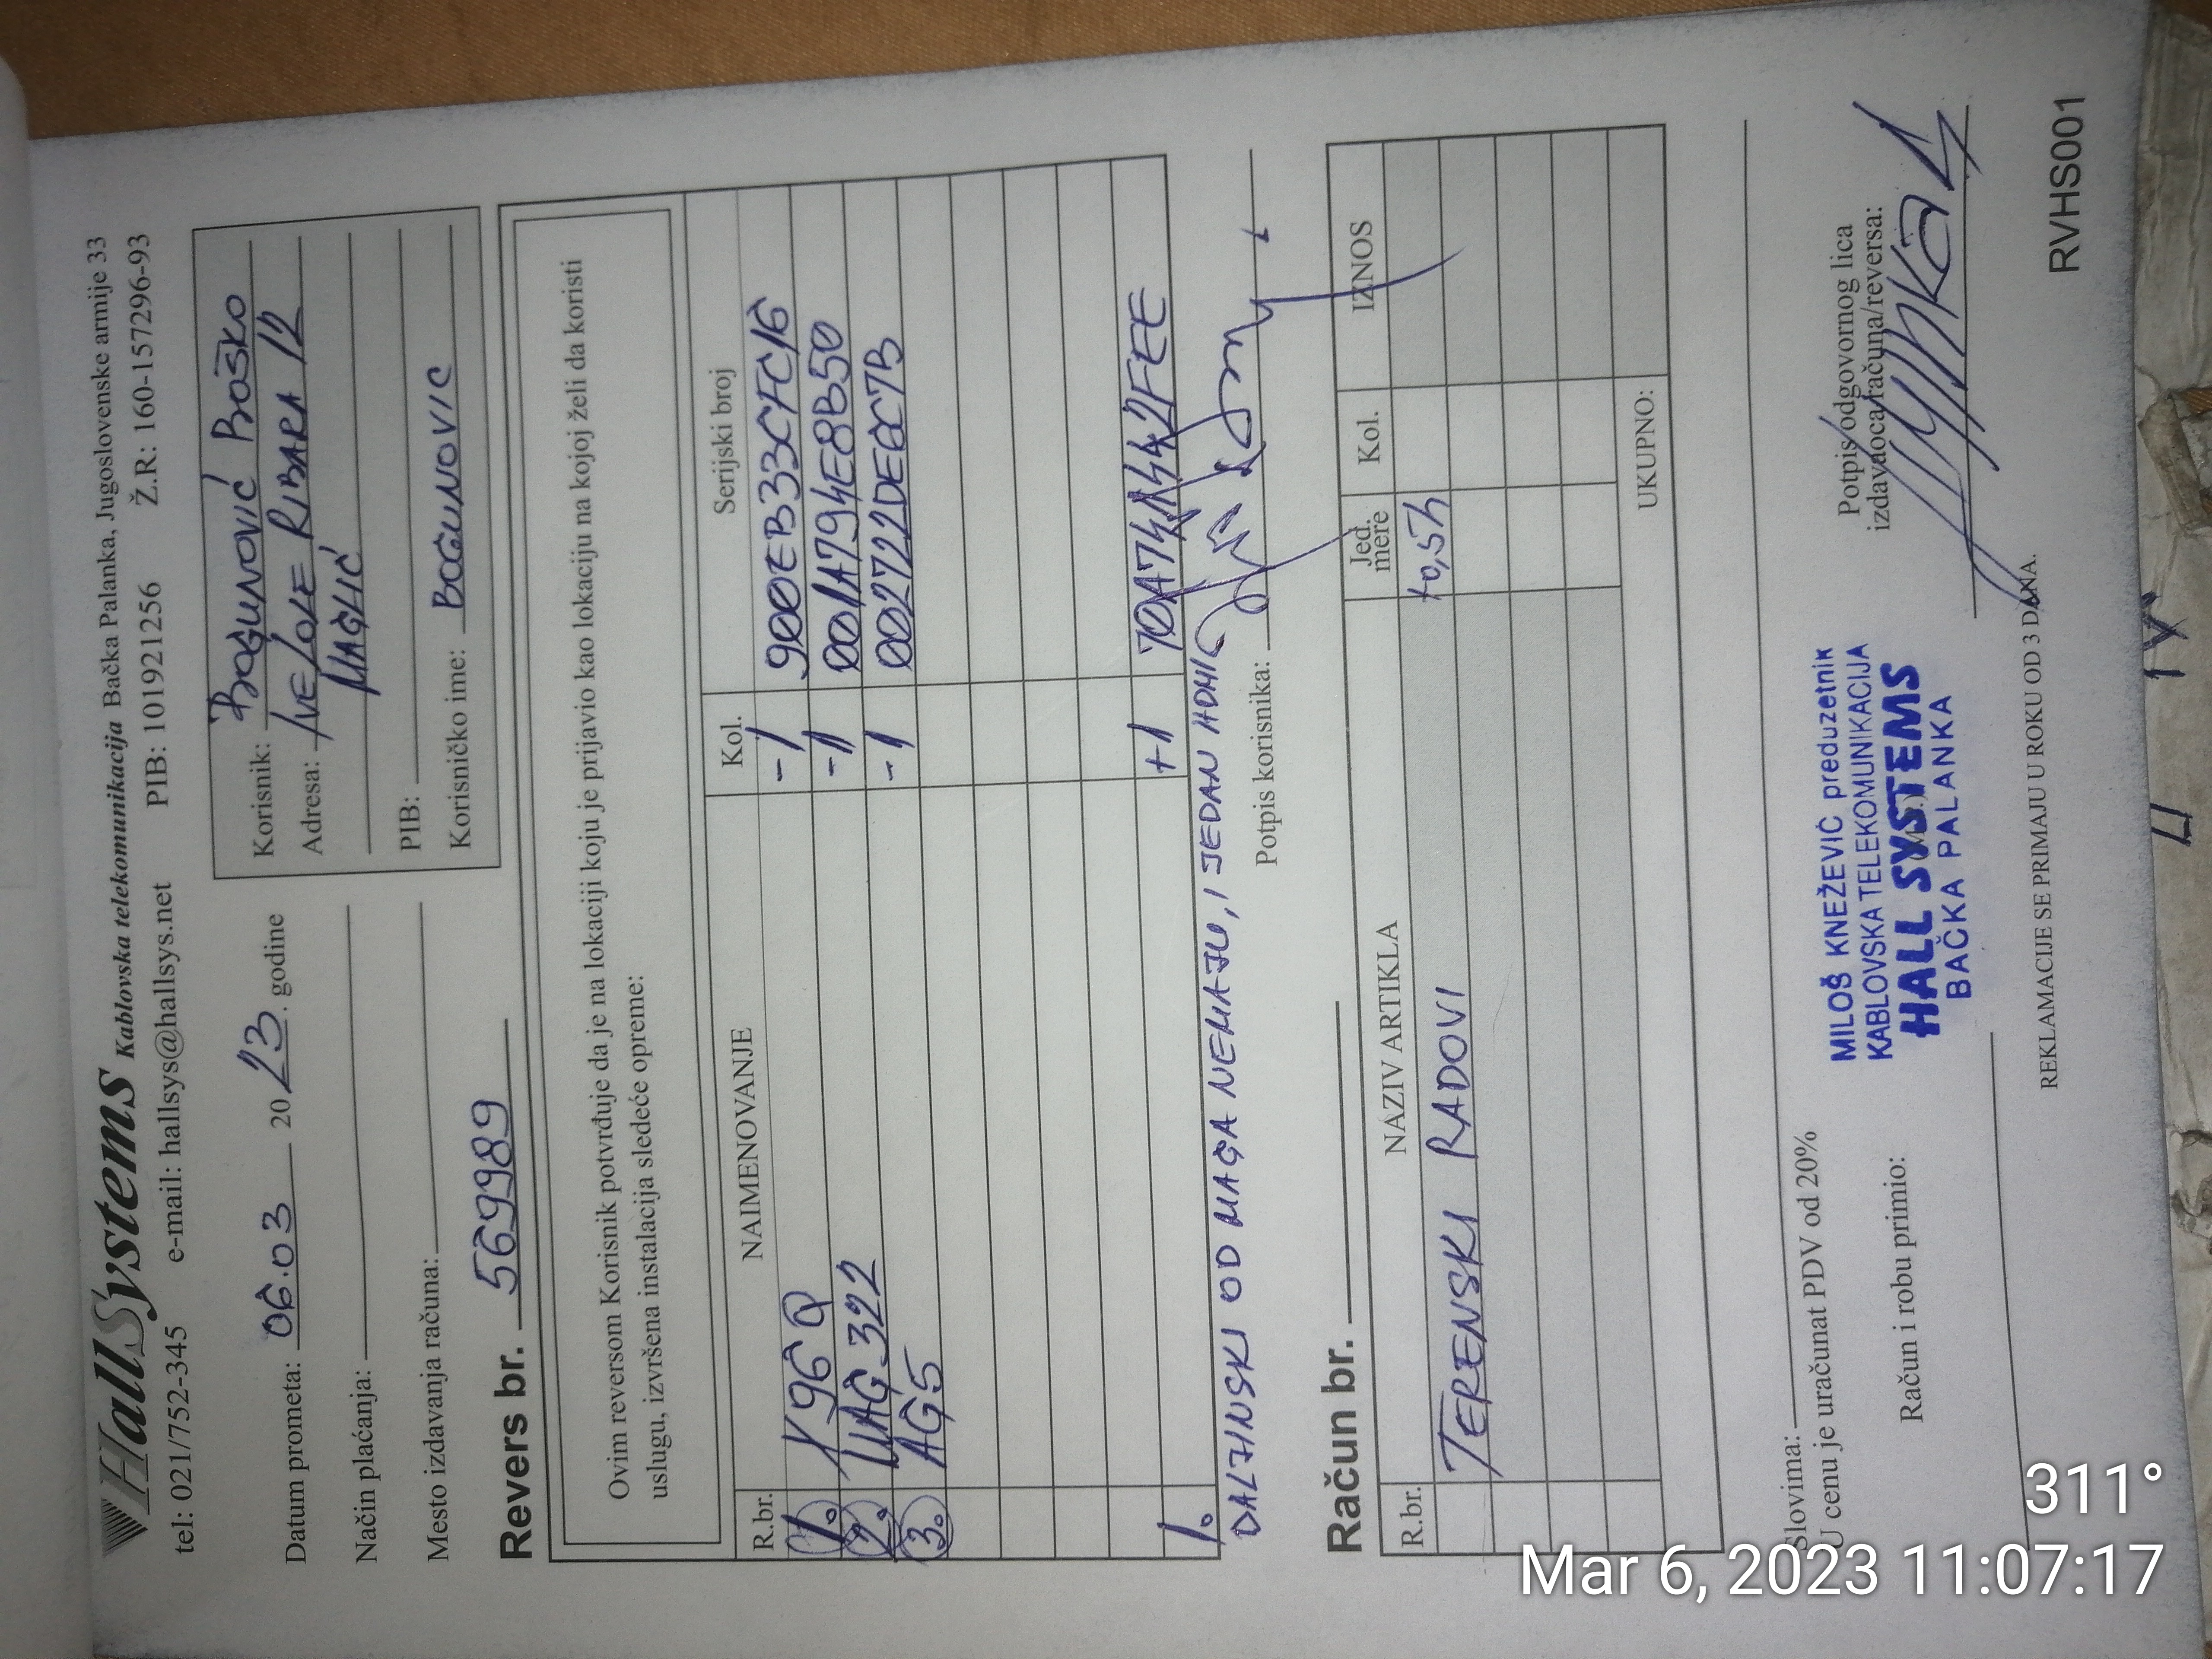 HallSystems Kablovska telekomunikacija Bačka Palanka, Jugoslovenske armije 33
tel: 021/752-345 e-mail: hallsys@hallsys.net PIB: 101921256 Ž.R: 160-157296-93
Datum prometa: 06.03 2023. godine
Način plaćanja:
Mesto izdavanja računa:
Korisnik: Bogunović Boško
Adresa: Ive Lole Ribara 12
Maglić
PIB:
Korisničko ime: Bogunovic
Revers br. 569989
Ovim reversom Korisnik potvrđuje da je na lokaciji koju je prijavio kao lokaciju na kojoj želi da koristi
uslugu, izvršena instalacija sledeće opreme:
R.br. NAIMENOVANJE Kol. Serijski broj
1. X96Q -1 900EB33CFC16
2. MAG 322 -1 001A794E8B50
3. AG5 -1 002722DE6C7B
1. +1 70A741442FEE
DALJINSKI OD MAGA NEMAJU, I JEDAN HDMI
Potpis korisnika:
Račun br.
R.br. NAZIV ARTIKLA Jed. mere Kol. IZNOS
TERENSKI RADOVI +0,5h
UKUPNO:
Slovima:
U cenu je uračunat PDV od 20%
Račun i robu primio:
MILOŠ KNEŽEVIĆ preduzetnik
KABLOVSKA TELEKOMUNIKACIJA
HALL SYSTEMS
BAČKA PALANKA
Potpis odgovornog lica
izdavaoca računa/reversa:
REKLAMACIJE SE PRIMAJU U ROKU OD 3 DANA.
RVHS001
311°
Mar 6, 2023 11:07:17